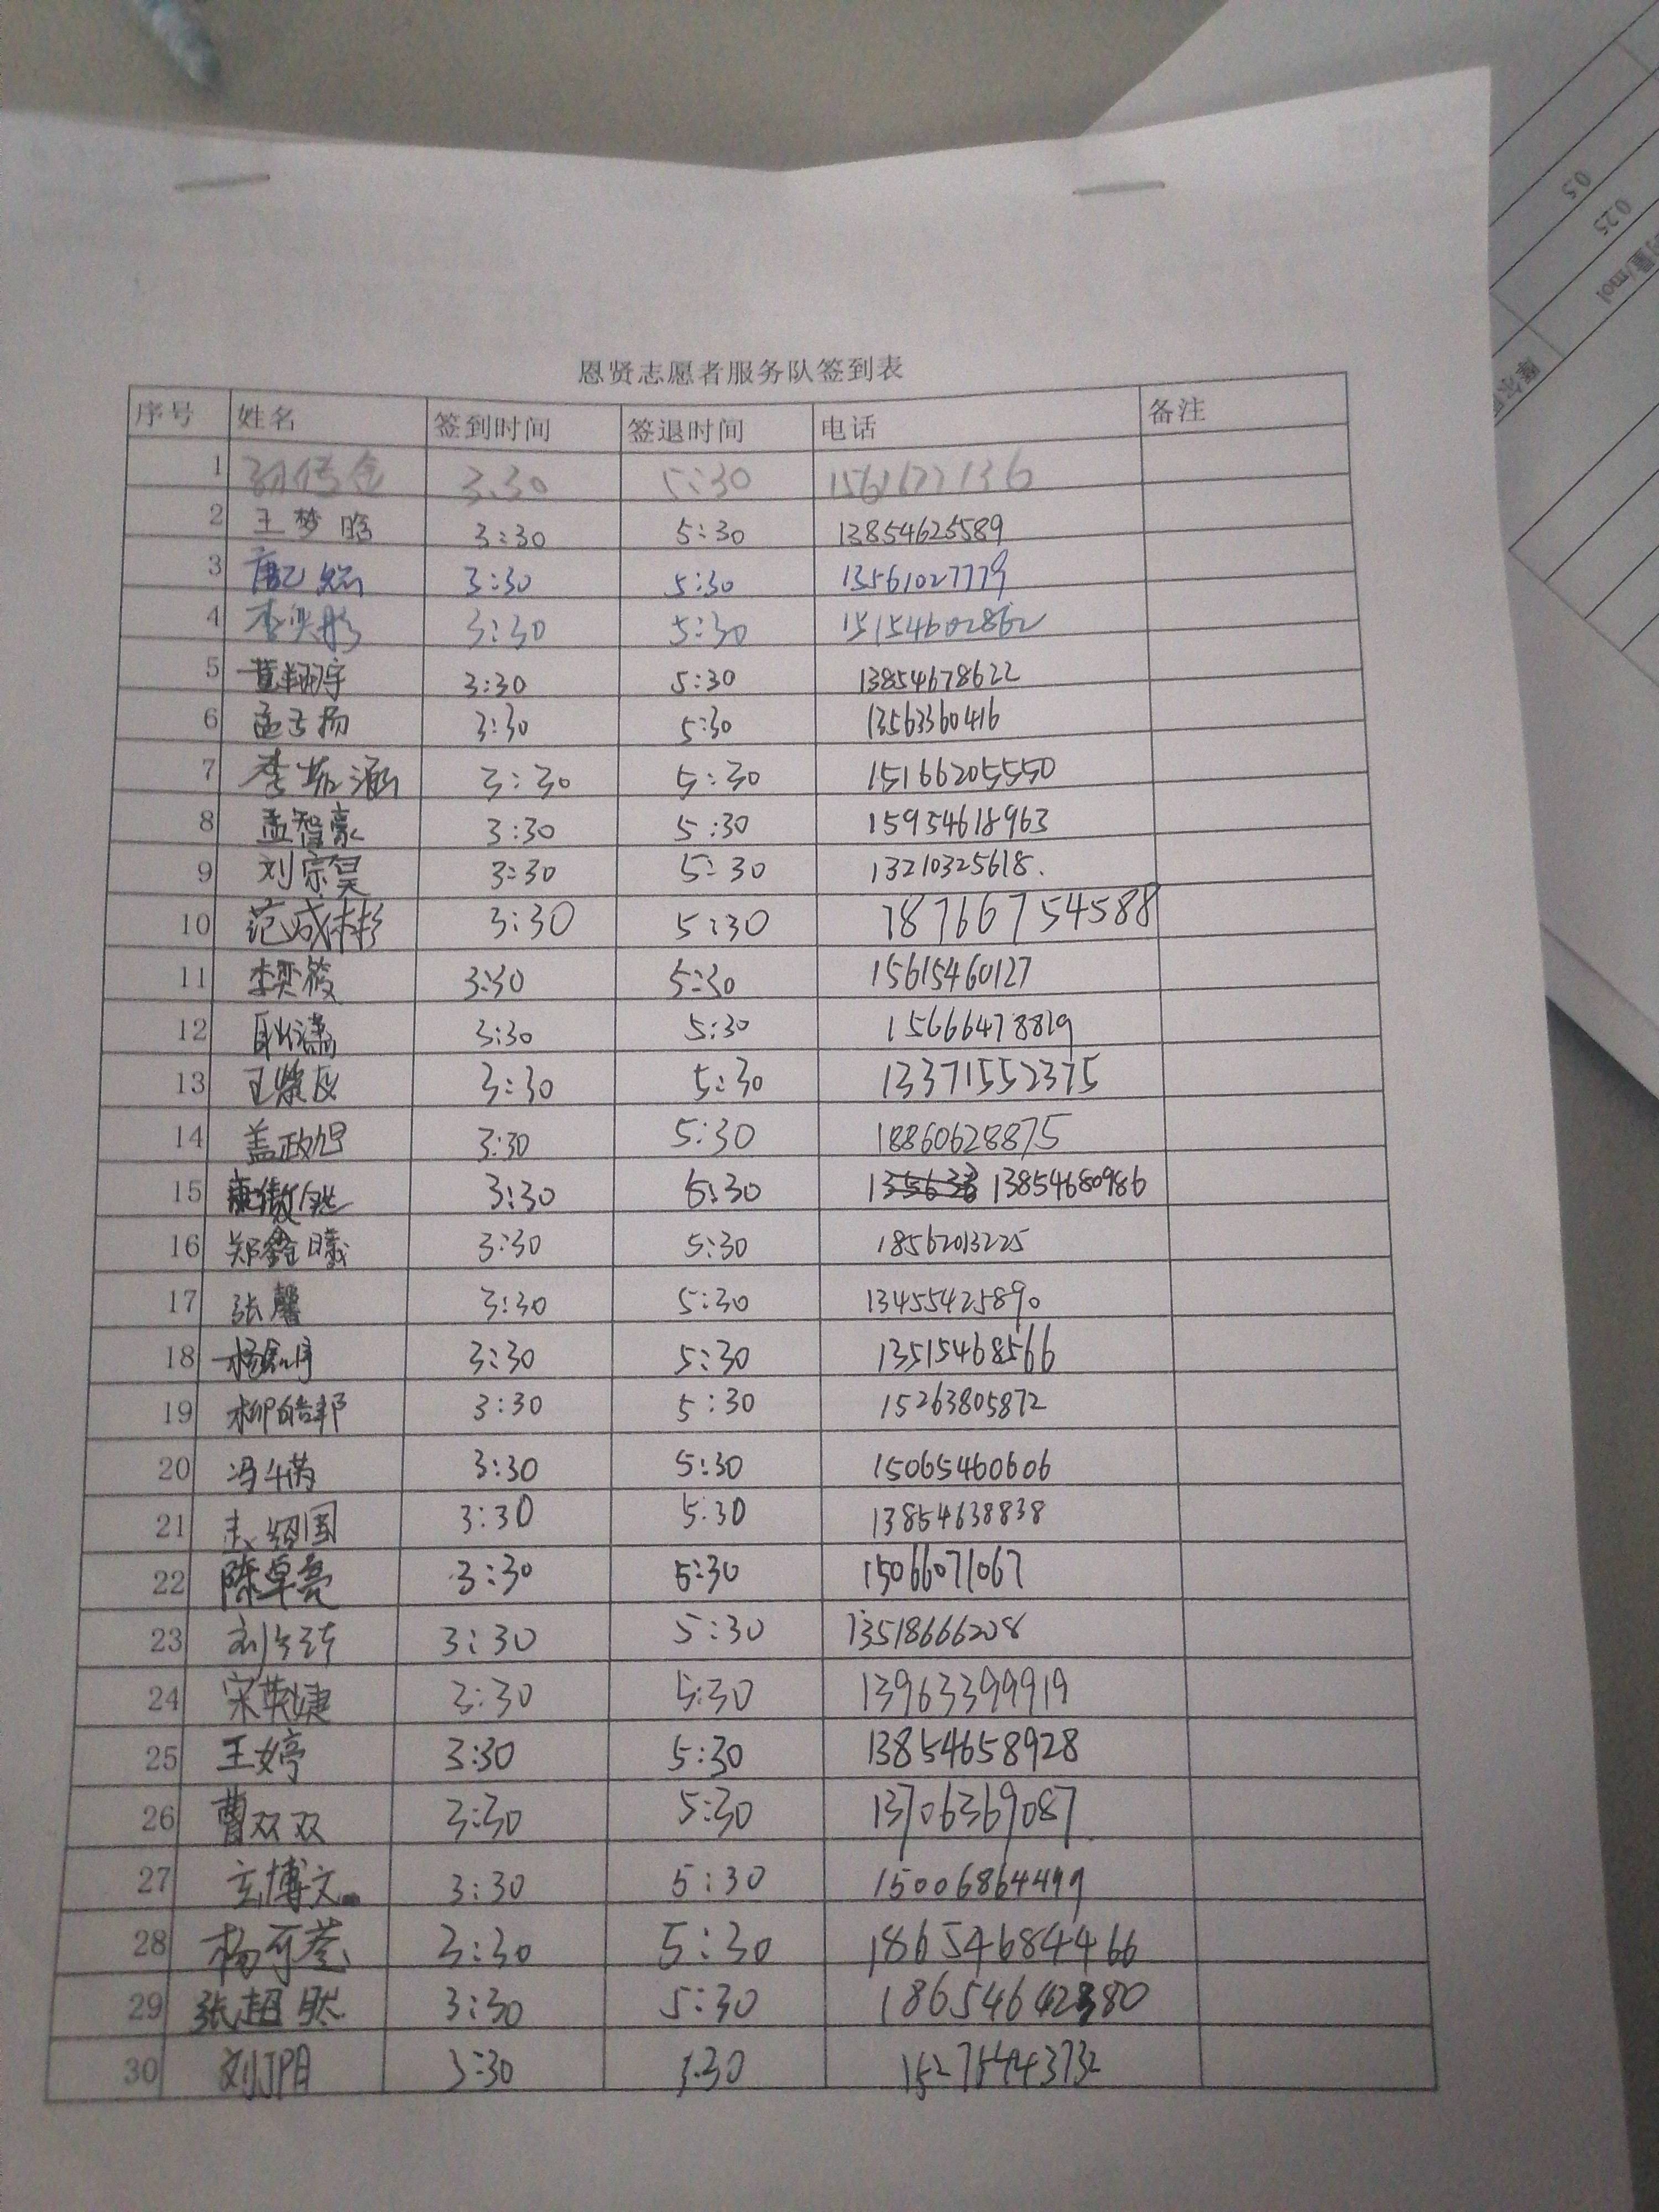 恩贤志愿者服务队签到表
序号 姓名 签到时间 签退时间 电话 备注
1 3:30 5:30
2 王梦晗 3:30 5:30 13854625589
3 3:30 5:30 13561027779
4 3:30 5:30 15154602862
5 董翔宇 3:30 5:30 13854678622
6 3:30 5:30 13563360416
7 3:30 5:30 15166205550
8 孟智豪 3:30 5:30 15954618963
9 刘宗昊 3:30 5:30 13210325618.
10 范成彬 3:30 5:30 18766754588
11 李奕筱 3:30 5:30 15615460127
12 耿潇 3:30 5:30 15666478829
13 3:30 5:30 13371552375
14 盖政旭 3:30 5:30 18860628875
15 3:30 5:30 13854680986
16 郑鑫曦 3:30 5:30 18562013225
17 张馨 3:30 5:30 13455425890
18 3:30 5:30 13515468566
19 柳皓邦 3:30 5:30 15263805872
20 3:30 5:30 15065460606
21 3:30 5:30 13854638838
22 陈卓亮 3:30 5:30 15066071067
23 3:30 5:30 13518666208
24 宋英婕 3:30 5:30 13963399919
25 王婷 3:30 5:30 13854658928
26 曹双双 3:30 5:30 13706369087
27 玄博文 3:30 5:30 15006864499
28 杨可荃 3:30 5:30 18654684466
29 张超然 3:30 5:30 18654642880
30 3:30 15275443732
0.5
0.25